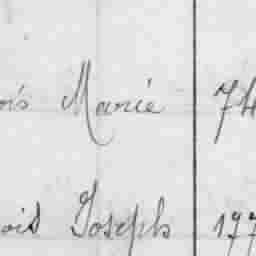 ois Marie 74
ois Joseph 197